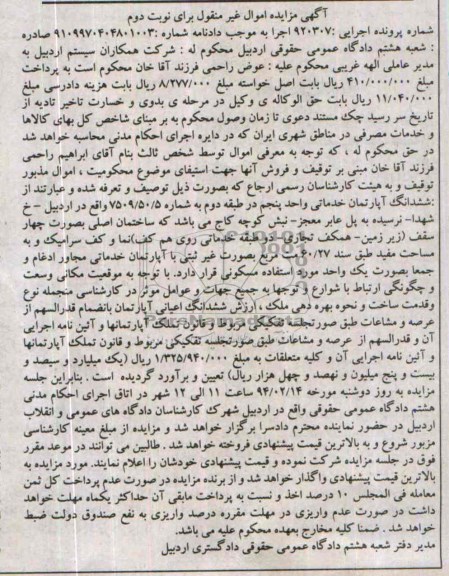 آگهی مزایده اموال غیر منقول برای نوبت دوم
شماره پرونده اجرایی :۹۲۰۳۰۷ اجرا به موجب دادنامه شماره :۹۱۰۹۹۷۰۴۰۴۸۰۱۰۰۳ صادره
: شعبه هشتم دادگاه عمومی حقوقی اردبیل محکوم له : شرکت همکاران سیستم اردبیل به
مدیر عاملی الهه غریبی محکوم علیه : عوض راحمی فرزند آقا خان محکوم است به پرداخت
مبلغ ۴۱۰/۰۰۰/۰۰۰ ریال بابت اصل خواسته مبلغ ۸/۲۷۷/۰۰۰ ریال بابت هزینه دادرسی مبلغ
۱۱/۰۴۰/۰۰۰ ریال بابت حق الوکاله ی وکیل در مرحله ی بدوی و خسارت تاخیر تادیه از
تاریخ سر رسید چک مستند دعوی تا زمان وصول محکوم به بر مبنای شاخص کل بهای کالاها
و خدمات مصرفی در مناطق شهری ایران که در دایره اجرای احکام مدنی محاسبه خواهد شد
در حق محکوم له ، که توجه به معرفی اموال توسط شخص ثالث بنام آقای ابراهیم راحمی
فرزند آقا خان مبنی بر توقیف و فروش آنها جهت استیفای موضوع محکومیت ، اموال مذبور
توقیف و به هیئت کارشناسان رسمی ارجاع که بصورت ذیل توصیف و تعرفه شده و عبارتند از
:ششدانگ آپارتمان خدماتی واحد پنجم در طبقه دوم به شماره ۷۵۰۹/۵۰/۵ واقع در اردبیل -خ
شهدا- نرسیده به پل عابر معجز- نبش کوچه کاج می باشد که ساختمان اصلی بصورت چهار
سقف (زیر زمین- همکف تجاری- دو طبقه خدماتی روی هم کف)نما و کف سرامیک و به
مساحت مفید طبق سند ۲۷/ متر مربع بصورت غیر ثبتی با آپارتمان خدماتی مجاور ادغام و
جمعا بصورت یک واحد مورد استفاده مسکونی قرار دارد. با توجه به موقعیت مکانی وسعت
و چگونگی ارتباط با شوارع و توجها به جمیع جهات و عوامل موثر در کارشناسی منجمله نوع
وقدمت ساخت و نحوه بهره دهی ملک ، ارزش ششدانگ اعیانی آپارتمان بانضمام قدرالسهم از
عرصه و مشاعات طبق صورتجلسه تفکیکی مربوط و قانون تملک آپارتمانها و آئین نامه اجرایی
آن و قدرالسهم از عرصه و مشاعات طبق صورتجلسه تفکیکی مربوط و قانون تملک آپارتمانها
و آئین نامه اجرایی آن و کلیه متعلقات به مبلغ ۱/۳۲۵/۹۴۰/۰۰۰ ریال (یک میلیارد و سیصد و
بیست و پنج میلیون و نهصد و چهل هزار ریال) تعیین و برآورد گردیده است . بنابراین جلسه
مزایده به روز دوشنبه مورخه ۹۴/۰۲/۱۴ ساعت ۱۱ الی ۱۲ شهر در اتاق اجرای احکام مدنی
هشتم دادگاه عمومی حقوقی واقع در اردبیل شهرک کارشناسان دادگاه های عمومی و انقلاب
اردبیل در حضور نماینده محترم دادسرا برگزار خواهد شد و مزایده از مبلغ معینه کارشناسی
مزبور شروع و به بالاترین قیمت پیشنهادی فروخته خواهد شد . طالبین می توانند در موعد مقرر
فوق در جلسه مزایده شرکت نموده و قیمت پیشنهادی خودشان را اعلام نمایند. مورد مزایده به
بالاترین قیمت پیشنهادی واگذار خواهد شد و از برنده مزایده در صورت عدم پرداخت کل ثمن
معامله فی المجلس ۱۰ درصد اخذ و نسبت به پرداخت مابقی آن حداکثر یکماه مهلت خواهد
داشت در صورت عدم واریزی در مهلت مقرره درصد واریزی به نفع صندوق دولت ضبط
خواهد شد . ضمنا کلیه مخارج بعهده محکوم علیه می باشد.
مدیر دفتر شعبه هشتم دادگاه عمومی حقوقی دادگستری اردبیل